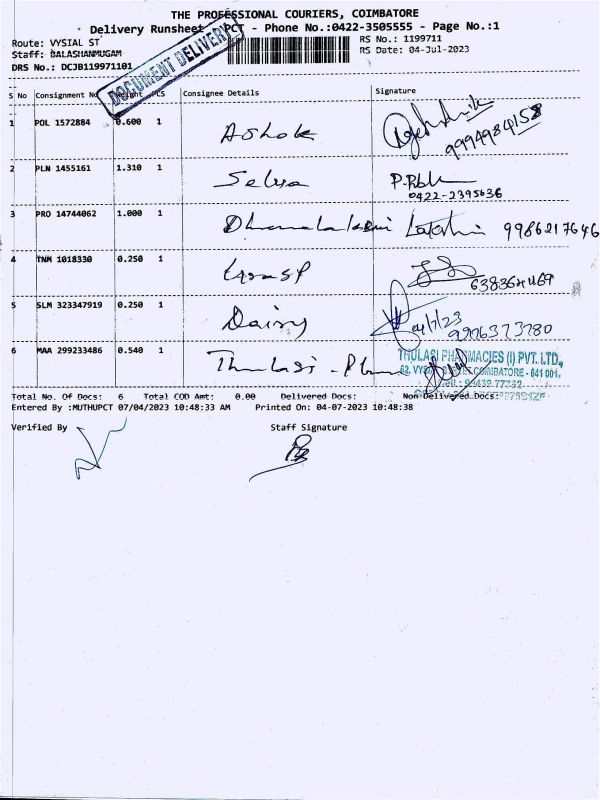 THE PROFESSIONAL COURIERS, COIMBATORE
Delivery Runsheet - PCT - Phone No.:0422-3505555 - Page No.:1
Route: VYSIAL ST
RS No.: 1199711
Staff: BALASHANMUGAM
RS Date: 04-Jul-2023
DRS No.: DCJB119971101
DOCUMENT DELIVERY
S No Consignment No Weight PCS Consignee Details Signature
1 POL 1572884 0.600 1 Ashok
9994984158
2 PLN 1455161 1.310 1 Selva
0422-2395636
3 PRO 14744062 1.000 1 Dhanalakshmi Lakshmi 9986217646
4 TNM 1018330 0.250 1
5 SLM 323347919 0.250 1 Daisy
04/7/23
6 MAA 299233486 0.540 1 Thulasi - Pharma
THULASI PHARMACIES (I) PVT. LTD.,
COIMBATORE - 641 001.
Total No. Of Docs: 6 Total COD Amt: 0.00 Delivered Docs: Non Delivered Docs:
Entered By :MUTHUPCT 07/04/2023 10:48:33 AM Printed On: 04-07-2023 10:48:38
Verified By Staff Signature